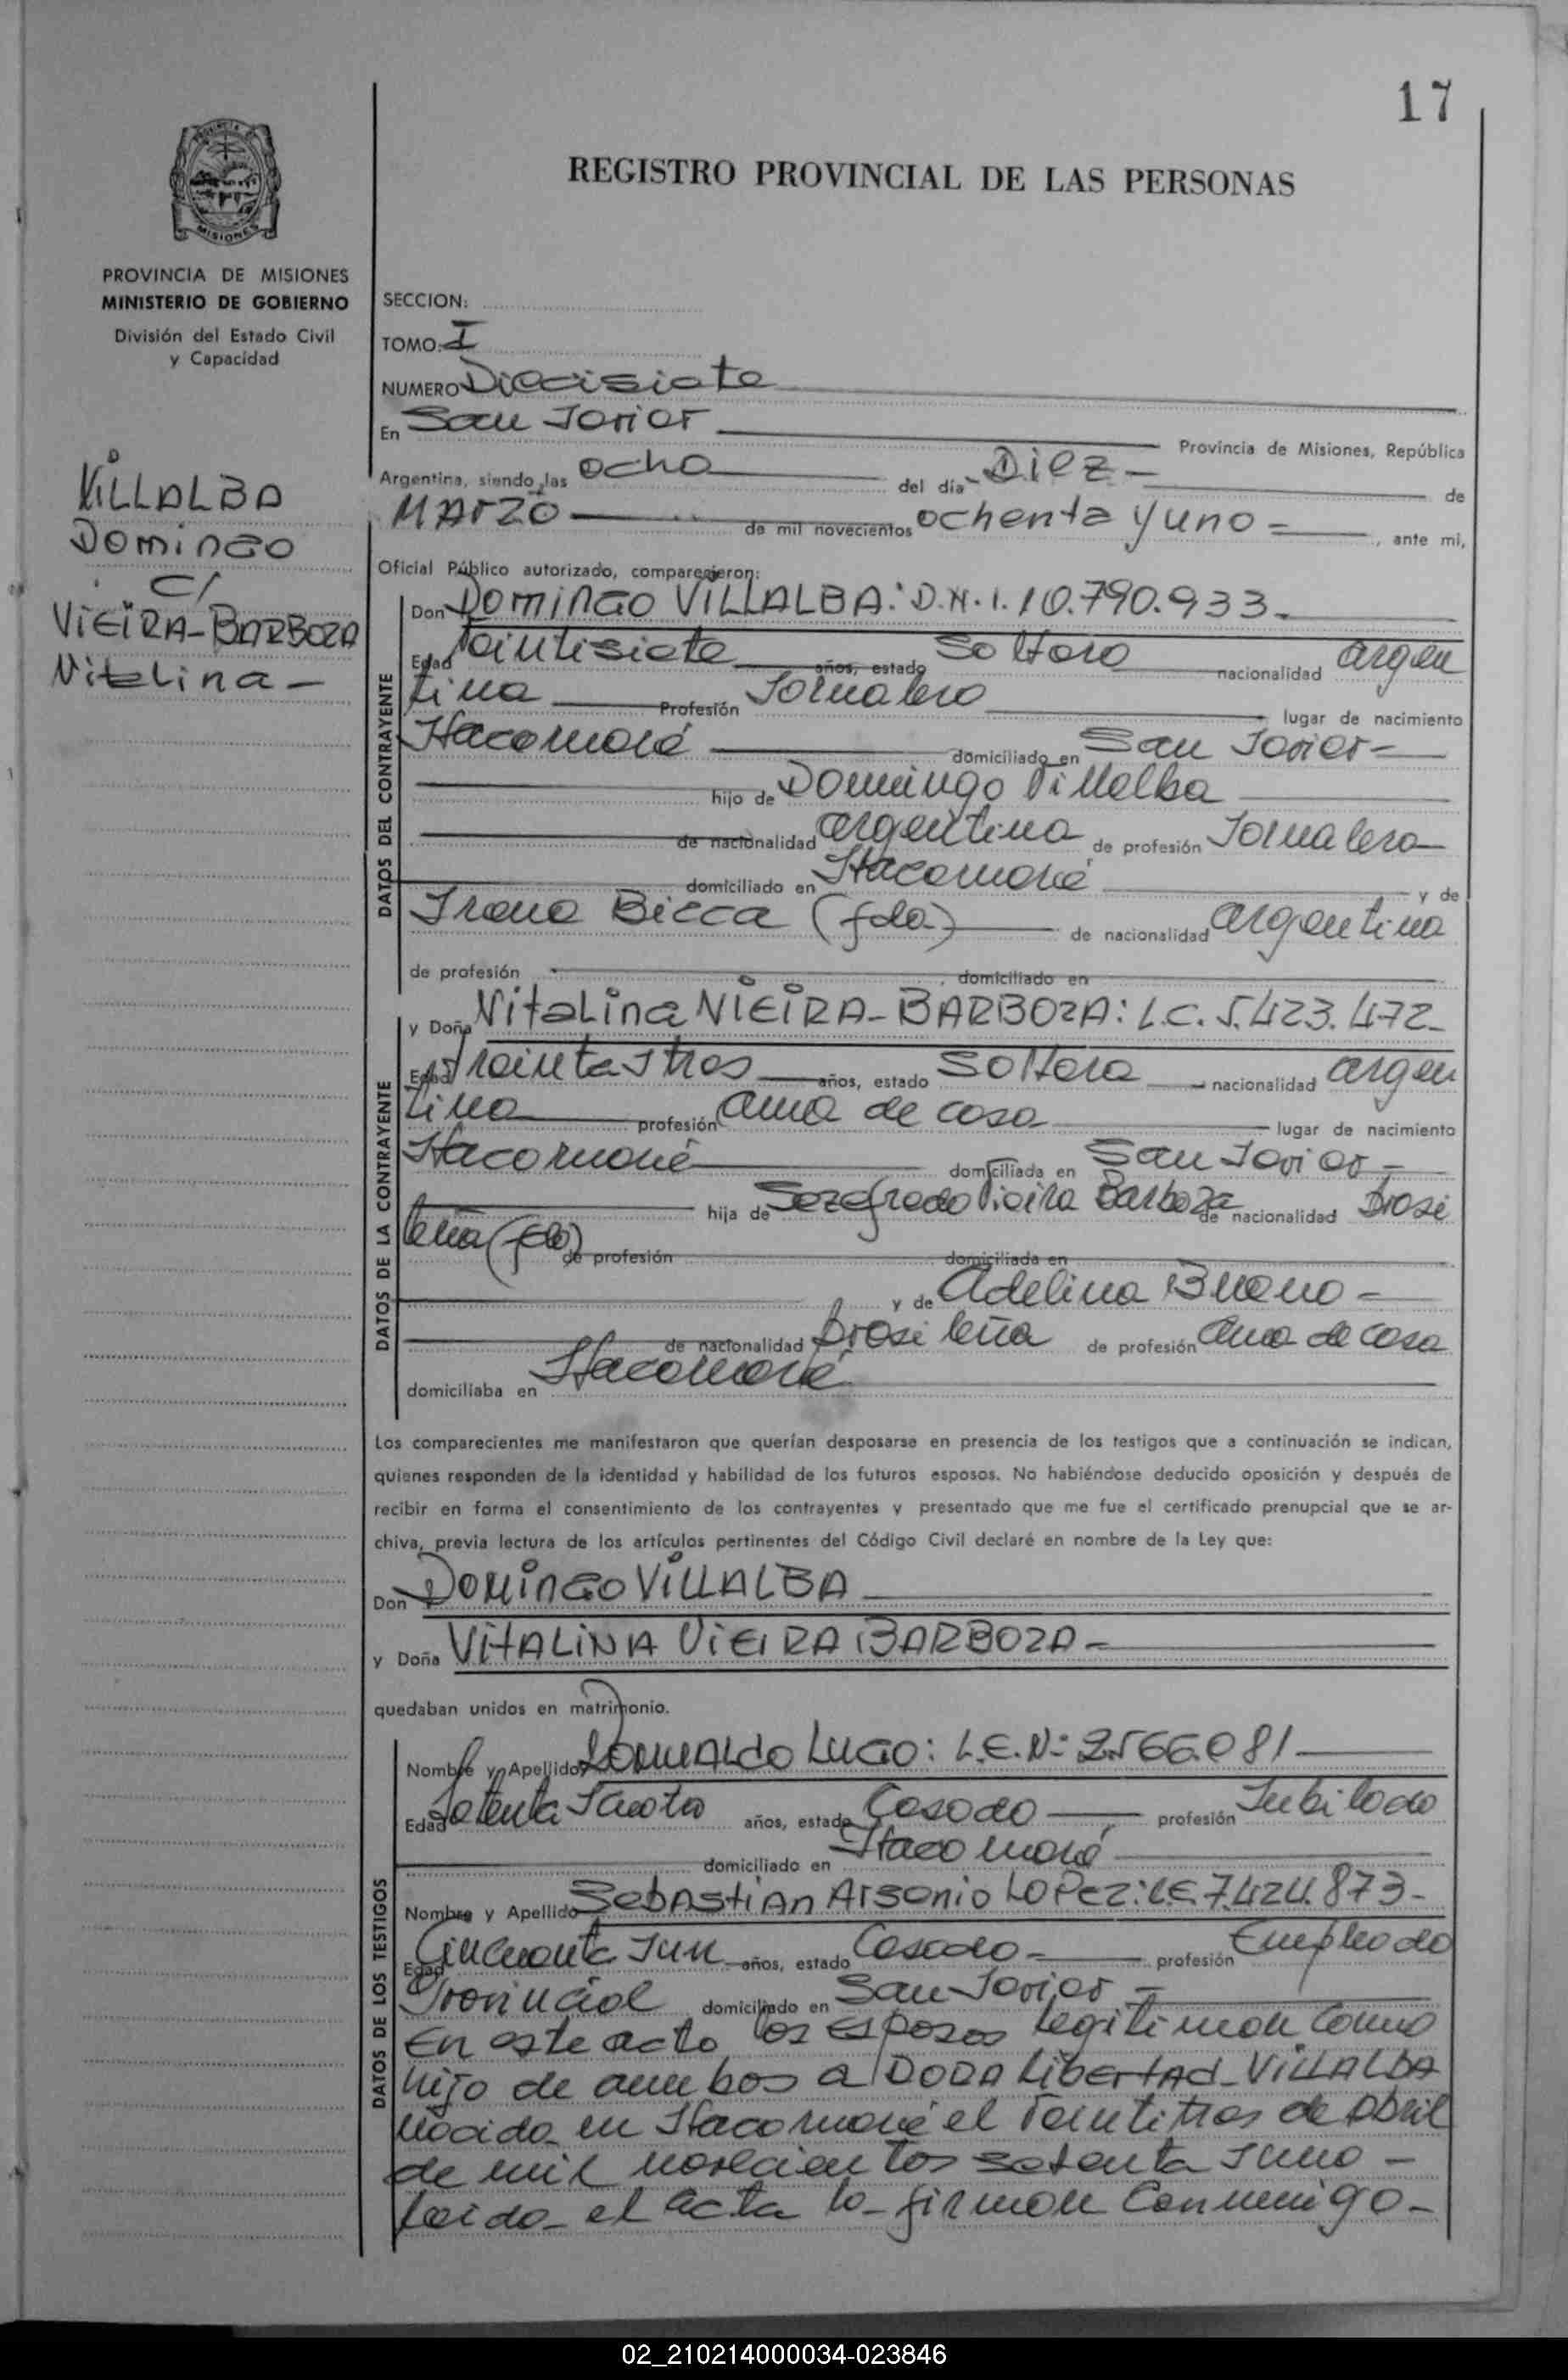 17
REGISTRO PROVINCIAL DE LAS PERSONAS
PROVINCIA DE MISIONES
MINISTERIO DE GOBIERNO
División del Estado Civil
y Capacidad
VILLALBA
Domingo
c/
VIEIRA-BARBOZA
Vitalina -
SECCION:
TOMO: I
NUMERO Diecisiete
En San Javier Provincia de Misiones, República
Argentina, siendo las ocho del día Diez - de
Marzo de mil novecientos ochenta y uno - , ante mi,
Oficial Público autorizado, comparecieron:
DATOS DEL CONTRAYENTE
Don Domingo VILLALBA: D.N.I. 10.790.933-
Edad Veintisiete años, estado Soltero nacionalidad argen
tina Profesión Jornalero lugar de nacimiento
Itacaruaré domiciliado en San Javier -
hijo de Domingo Villalba
de nacionalidad argentina de profesión Jornalero
domiciliado en Itacaruaré y de
Irene Bicca (fda.) de nacionalidad argentina
de profesión , domiciliado en
DATOS DE LA CONTRAYENTE
y Doña Vitalina VIEIRA-BARBOZA: L.C. 5.423.472-
Edad Treinta y tres años, estado Soltera nacionalidad argen
tina profesión ama de casa lugar de nacimiento
Itacaruaré domiciliada en San Javier -
hija de Sezefredo Vieira Barboza de nacionalidad brasi
leña (fdo) de profesión domiciliada en
y de Adelina Bueno -
de nacionalidad brasileña de profesión ama de casa
domiciliaba en Itacaruaré
Los comparecientes me manifestaron que querían desposarse en presencia de los testigos que a continuación se indican,
quienes responden de la identidad y habilidad de los futuros esposos. No habiéndose deducido oposición y después de
recibir en forma el consentimiento de los contrayentes y presentado que me fue el certificado prenupcial que se ar-
chiva, previa lectura de los artículos pertinentes del Código Civil declaré en nombre de la Ley que:
Don DOMINGO VILLALBA
y Doña VITALINA VIEIRA BARBOZA -
quedaban unidos en matrimonio.
DATOS DE LOS TESTIGOS
Nombre y Apellido Romualdo LUGO: L.E.Nº 2.566.081
Edad Setenta y cuatro años, estado Casado profesión Jubilado
domiciliado en Itacaruaré
Nombre y Apellido Sebastián Arsenio LOPEZ: LE 7.424.873-
Edad Cincuenta y un años, estado Casado - profesión Empleado
Provincial domiciliado en San Javier -
En este acto los esposos legitiman como
hijo de ambos a DORA Libertad VILLALBA
nacida en Itacaruaré el veintitres de abril
de mil novecientos setenta y uno -
leida el acta la firman conmigo -
02_210214000034-023846